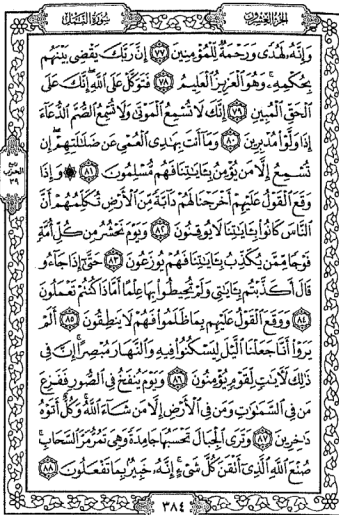 الجزء العشرون سورة النمل
وَإِنَّهُۥ لَهُدًى وَرَحْمَةٌ لِّلْمُؤْمِنِينَ ٧٧ إِنَّ رَبَّكَ يَقْضِى بَيْنَهُم
بِحُكْمِهِۦ وَهُوَ ٱلْعَزِيزُ ٱلْعَلِيمُ ٧٨ فَتَوَكَّلْ عَلَى ٱللَّهِ إِنَّكَ عَلَى
ٱلْحَقِّ ٱلْمُبِينِ ٧٩ إِنَّكَ لَا تُسْمِعُ ٱلْمَوْتَىٰ وَلَا تُسْمِعُ ٱلصُّمَّ ٱلدُّعَآءَ
إِذَا وَلَّوْا۟ مُدْبِرِينَ ٨٠ وَمَآ أَنتَ بِهَـٰدِى ٱلْعُمْىِ عَن ضَلَـٰلَتِهِمْ إِن
تُسْمِعُ إِلَّا مَن يُؤْمِنُ بِـَٔايَـٰتِنَا فَهُم مُّسْلِمُونَ ٨١ ۞ وَإِذَا
وَقَعَ ٱلْقَوْلُ عَلَيْهِمْ أَخْرَجْنَا لَهُمْ دَآبَّةً مِّنَ ٱلْأَرْضِ تُكَلِّمُهُمْ أَنَّ
ٱلنَّاسَ كَانُوا۟ بِـَٔايَـٰتِنَا لَا يُوقِنُونَ ٨٢ وَيَوْمَ نَحْشُرُ مِن كُلِّ أُمَّةٍ
فَوْجًا مِّمَّن يُكَذِّبُ بِـَٔايَـٰتِنَا فَهُمْ يُوزَعُونَ ٨٣ حَتَّىٰٓ إِذَا جَآءُو
قَالَ أَكَذَّبْتُم بِـَٔايَـٰتِى وَلَمْ تُحِيطُوا۟ بِهَا عِلْمًا أَمَّاذَا كُنتُمْ تَعْمَلُونَ
٨٤ وَوَقَعَ ٱلْقَوْلُ عَلَيْهِم بِمَا ظَلَمُوا۟ فَهُمْ لَا يَنطِقُونَ ٨٥ أَلَمْ
يَرَوْا۟ أَنَّا جَعَلْنَا ٱلَّيْلَ لِيَسْكُنُوا۟ فِيهِ وَٱلنَّهَارَ مُبْصِرًا إِنَّ فِى
ذَٰلِكَ لَـَٔايَـٰتٍ لِّقَوْمٍ يُؤْمِنُونَ ٨٦ وَيَوْمَ يُنفَخُ فِى ٱلصُّورِ فَفَزِعَ
مَن فِى ٱلسَّمَـٰوَٰتِ وَمَن فِى ٱلْأَرْضِ إِلَّا مَن شَآءَ ٱللَّهُ وَكُلٌّ أَتَوْهُ
دَٰخِرِينَ ٨٧ وَتَرَى ٱلْجِبَالَ تَحْسَبُهَا جَامِدَةً وَهِىَ تَمُرُّ مَرَّ ٱلسَّحَابِ
صُنْعَ ٱللَّهِ ٱلَّذِىٓ أَتْقَنَ كُلَّ شَىْءٍ إِنَّهُۥ خَبِيرٌۢ بِمَا تَفْعَلُونَ ٨٨
ربع
الحزب
٣٩
٣٨٤